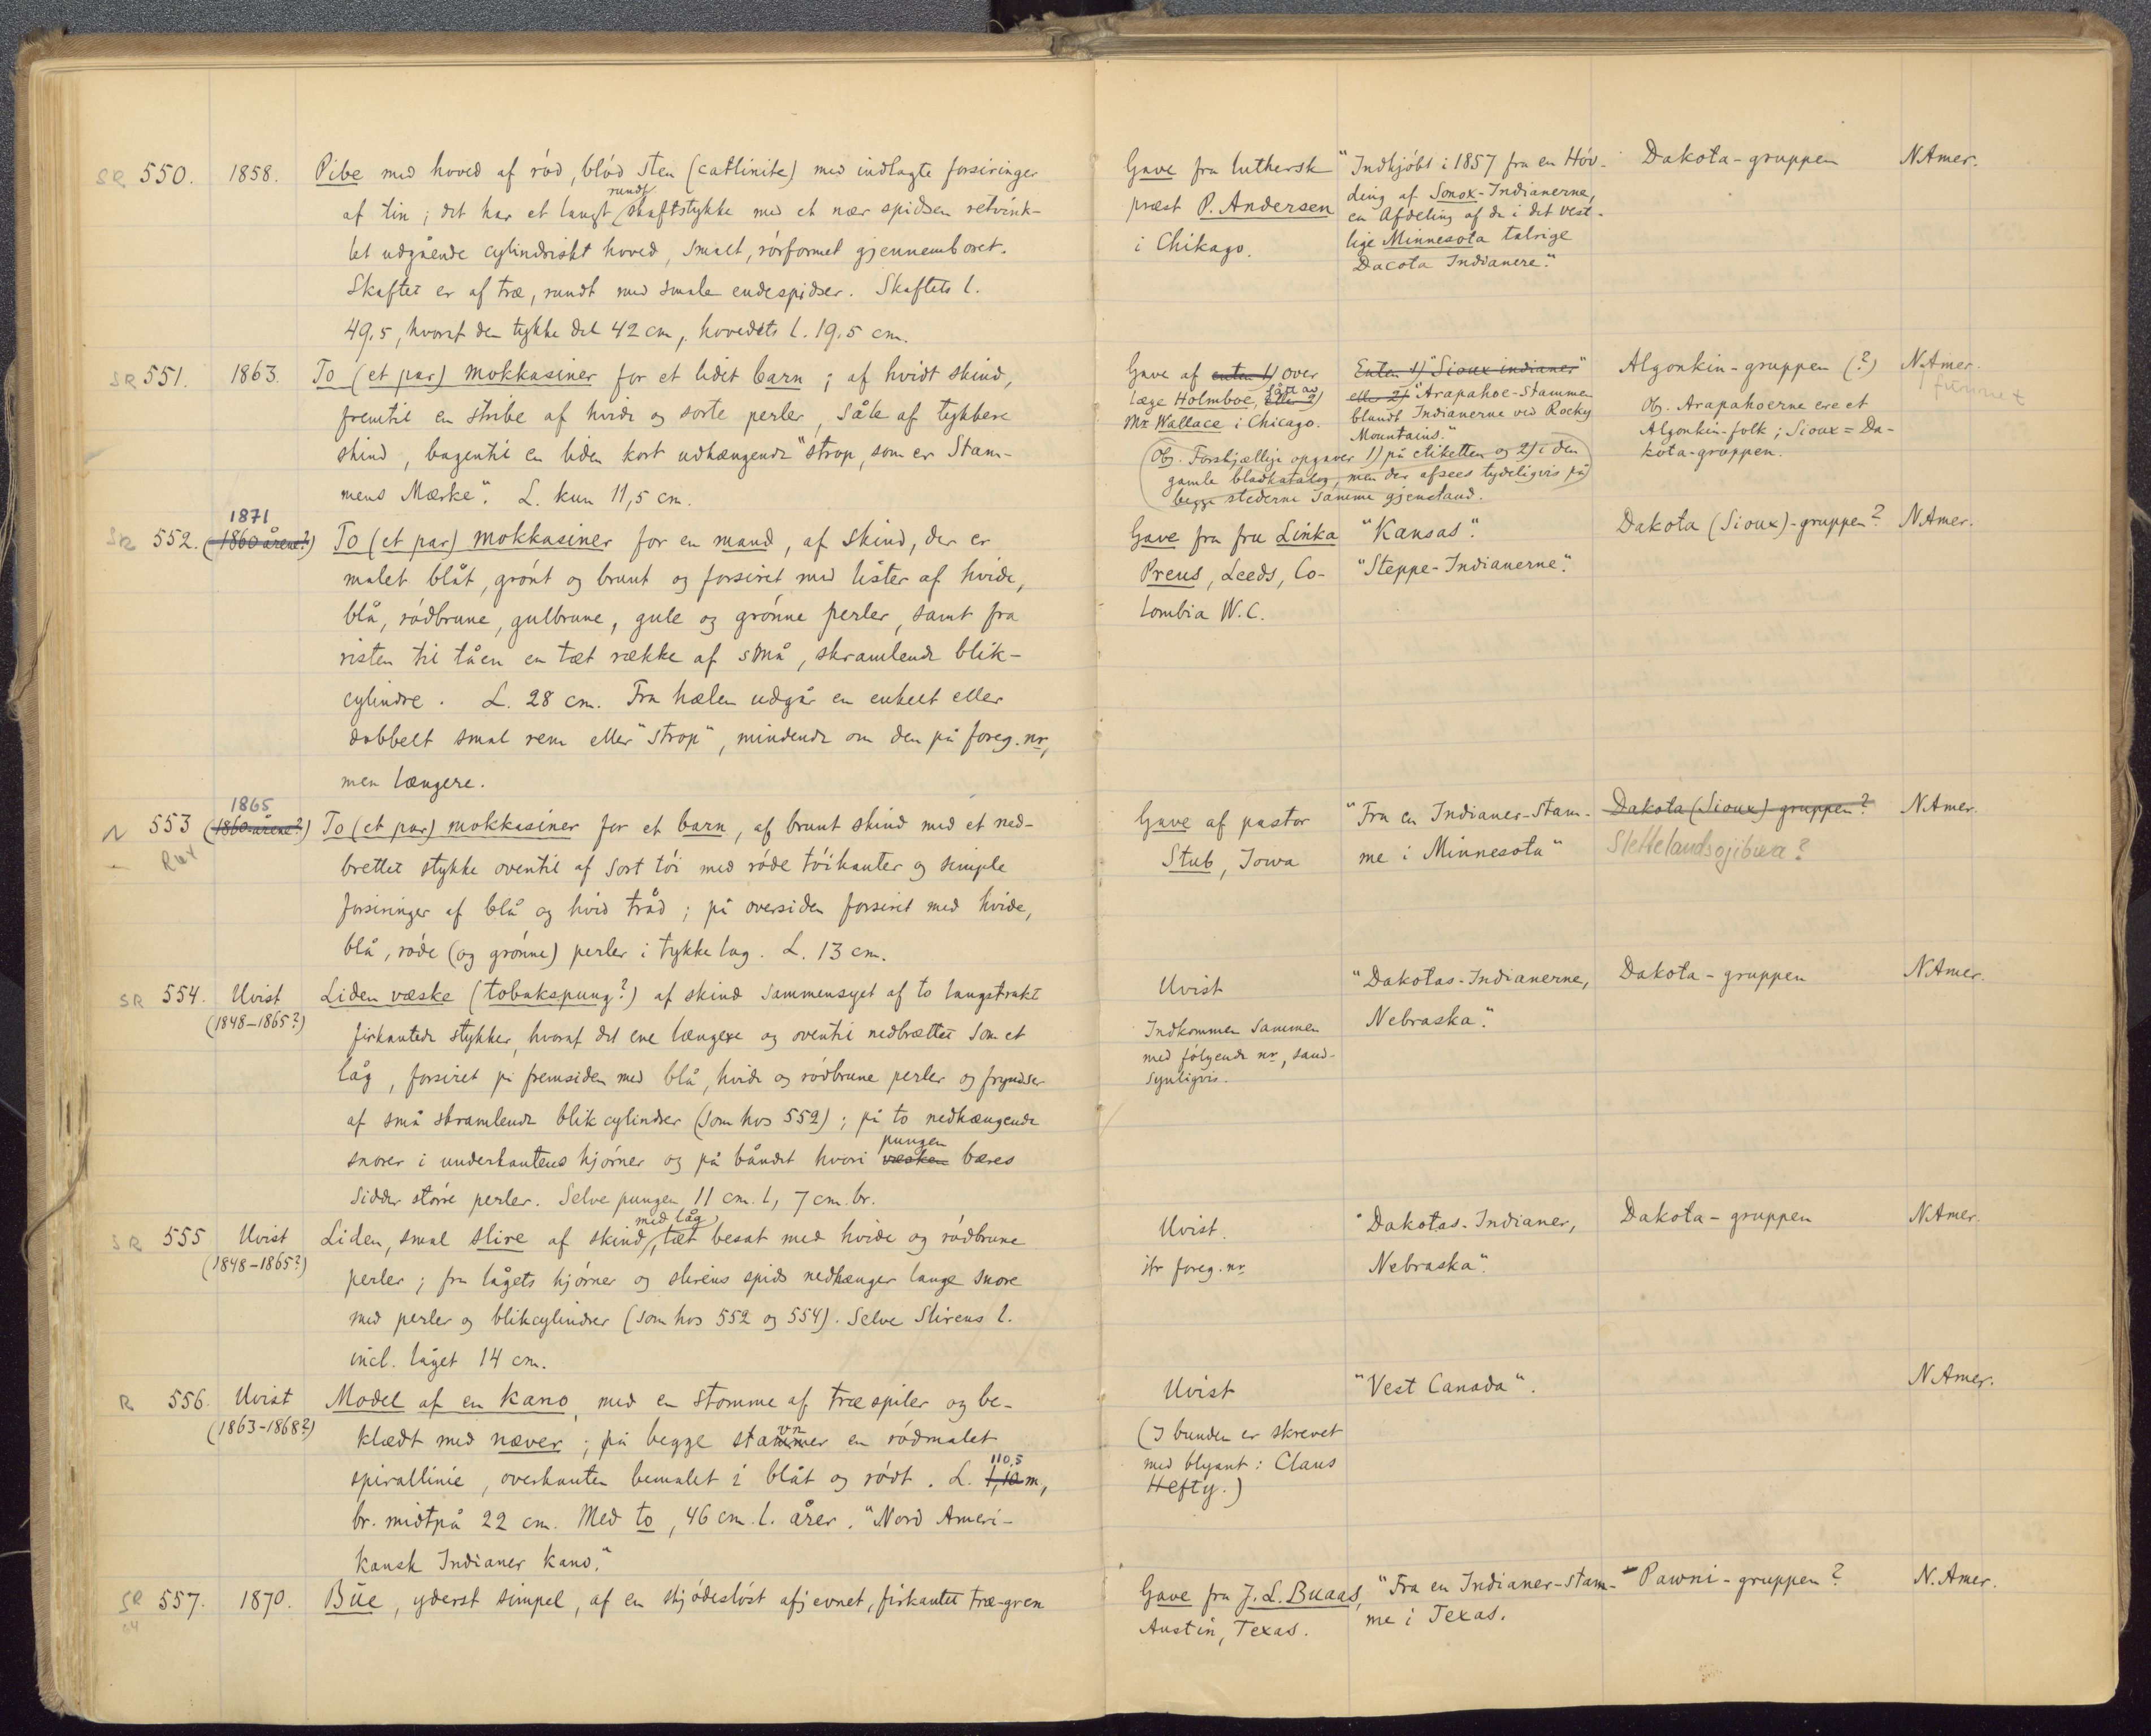 SR 550. 1858. Pibe med hoved af rød, blød sten (catlinite) med indlagte forsiringer
af tin; det har et langt rundt skaftstykke med et nær spidsen retvink-
let udgående cylindriskt hoved, smalt, rørformet gjennemboret.
Skaftet er af træ, rundt med smale endespidser. Skaftets l.
49,5, hvoraf den tykke del 42 cm, hovedets l. 19,5 cm.
Gave fra luthersk
præst P. Andersen
i Chikago.
"Indkjøbt i 1857 fra en Høv-
ding af Sonox-Indianerne,
en Afdeling af de i det vest-
lige Minnesota talrige
Dacota Indianere."
Dakota-gruppen
N.Amer.
SR 551. 1863. To (et par) mokkasiner for et lidet barn; af hvidt skind,
fremtil en stribe af hvide og sorte perler, såle af tykkere
skind, bagentil en liden kort udhængende "strop, som er Stam-
mens Mærke". L. kun 11,5 cm.
Gave af enten 1) over
læge Holmboe, eller 2)
Mr Wallace i Chicago.
Enten 1) "Sioux indianer"
eller 2) "Arapahoe-Stammen
blandt Indianerne ved Rocky
Mountains."
(Obs. Forskjællige opgaver 1) på etiketten og 2) i den
gamle bladkatalog, men der afsees tydeligvis på
begge stederne samme gjenstand.
Algonkin-gruppen (?)
Obs. Arapahoerne ere et
Algonkin-folk; Sioux = Da-
kota-gruppen.
N.Amer.
funnet
SR 552. 1871 (1860 årene?) To (et par) mokkasiner for en mand, af skind, der er
malet blåt, grønt og brunt og forsiret med lister af hvide,
blå, rødbrune, gulbrune, gule og grønne perler, samt fra
risten til tåen en tæt række af små, skramlende blik-
cylindre. L. 28 cm. Fra hælen udgår en enkelt eller
dobbelt smal rem eller "strop", mindende om den på foreg. nr,
men længere.
Gave fra fru Linka
Preus, Leeds, Co-
lombia W.C.
"Kansas".
"Steppe-Indianerne".
Dakota (Sioux)-gruppen?
N.Amer.
N 553 1865 (1860-årene?) To (et par) mokkasiner for et barn, af brunt skind med et ned-
brettet stykke oventil af sort tøi med røde tøikanter og simple
forsiringer af blå og hvid tråd; på oversiden forsiret med hvide,
blå, røde (og grønne) perler i tykke lag. L. 13 cm.
Gave af pastor
Stub, Iowa
"Fra en Indianer-Stam-
me i Minnesota"
Dakota (Sioux) gruppen?
Slettelandsojibwa?
N.Amer.
SR 554. Uvist (1848-1865?) Liden væske (tobakspung?) af skind sammensyet af to langstrakt
firkantede stykker, hvoraf det ene længere og oventil nedbrættet som et
låg, forsiret på fremsiden med blå, hvide og rødbrune perler og fryndser
af små skramlende blikcylindrer (som hos 552); på to nedhængende
snorer i underkantens hjørner og på båndet hvori væsken pungen bæres
sidder større perler. Selve pungen 11 cm. l, 7 cm. br.
Uvist
Indkommen sammen
med følgende nr, sand-
synligvis.
"Dakotas-Indianerne,
Nebraska".
Dakota-gruppen
N.Amer.
SR 555 Uvist (1848-1865?) Liden, smal slire af skind med låg, tæt besat med hvide og rødbrune
perler; fra lågets hjørner og slirens spids nedhænger lange snore
med perler og blikcylindrer (som hos 552 og 554). Selve Slirens l.
incl. låget 14 cm.
Uvist.
jfr foreg. nr.
"Dakotas-Indianer,
Nebraska".
Dakota-gruppen
N.Amer.
R 556. Uvist (1863-1868?) Model af en kano, med en stomme af træspiler og be-
klædt med næver; på begge stavner en rødmalet
spirallinie, overkanten bemalet i blåt og rødt. L. 1,10 110,5 m,
br. midtpå 22 cm. Med to, 46 cm. l. årer. "Nord Ameri-
kansk Indianer kano."
Uvist
(I bunden er skrevet
med blyant: Claus
Hefty.)
"Vest Canada".
N.Amer.
SR 557. 1870. Bue, yderst simpel, af en skjødesløst afjevnet, firkantet træ-gren
Gave fra J.L. Buaas,
Austin, Texas.
"Fra en Indianer-stam-
me i Texas.
Pawni-gruppen?
N.Amer.